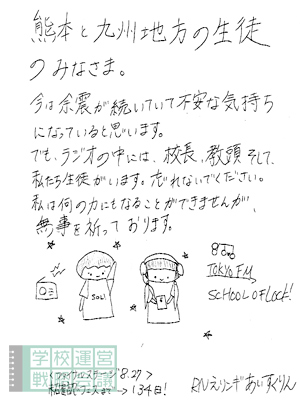 熊本と九州地方の生徒
のみなさま。
今は余震が続いていて不安な気持ち
になっていると思います。
でも、ラジオの中には、校長、教頭そして、
私たち生徒がいます。忘れないでください。
私は何の力にもなることができませんが、
無事を祈っております。
SOL!
TOKYO FM
SCHOOL OF LOCK!
学校運営
戦
議
8.27
134日!
RN えリンギあいすくりん